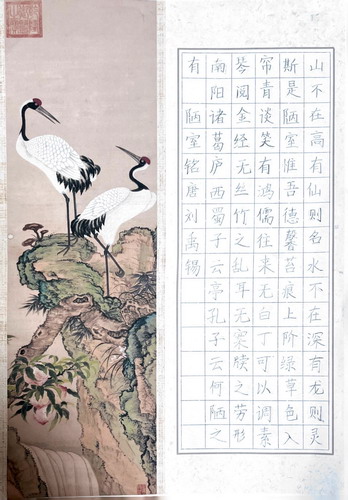 山不在高有仙则名水不在深有龙则灵
斯是陋室惟吾德馨苔痕上阶绿草色入
帘青谈笑有鸿儒往来无白丁可以调素
琴阅金经无丝竹之乱耳无案牍之劳形
南阳诸葛庐西蜀子云亭孔子云何陋之
有 陋室铭唐刘禹锡